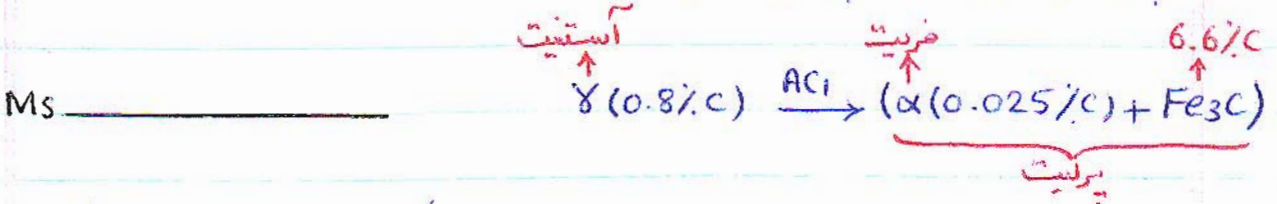 آستنیت فریت 6.6%C
Ms γ(0.8%C) AC₁ → (α(0.025%C) + Fe3C)
پرلیت